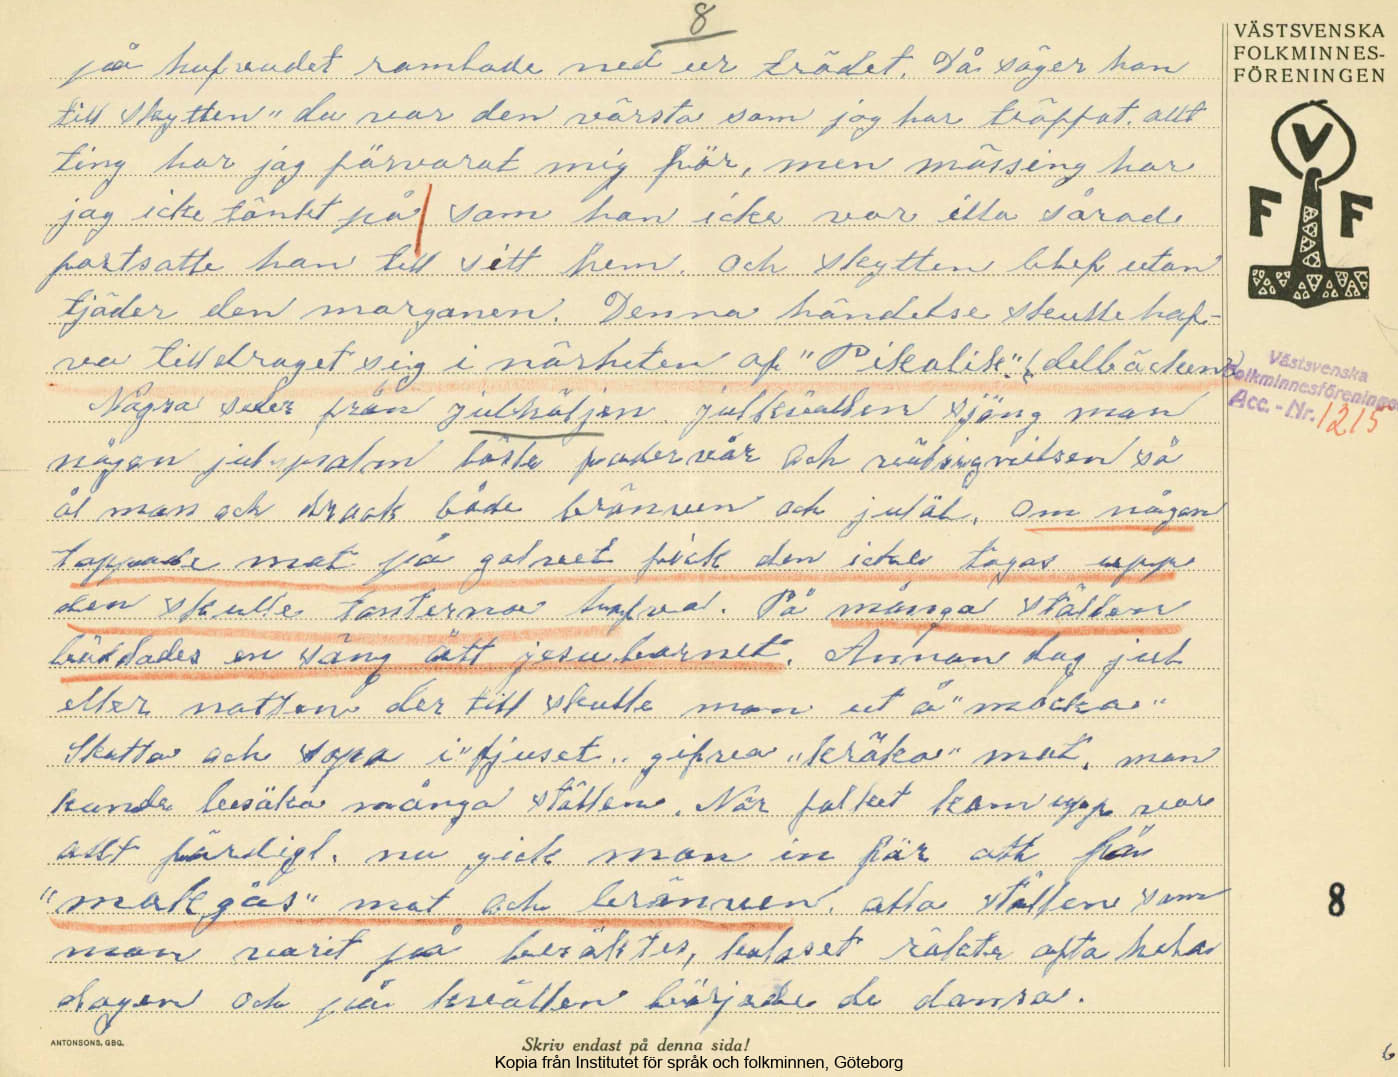 8
VÄSTSVENSKA
FOLKMINNES-
FÖRENINGEN
V
F F
på hufvudet ramlade ned ur trädet. Då säger han
till skytten "du var den värsta som jag har träffat. allt
ting har jag förvarat mig för, men mässing har
jag icke tänkt på som han icke var illa sårad
fortsatte han till sitt hem. och skytten blef utan
tjäder den morganen. Denna händelse skulle haf-
va tilldraget sig i närheten af "Pikalik". (delbäcken)
Några seder från julhäljen julkvällen sjöng man
någon jul-psalm läste fadervår och välsignelsen så
åt man och drack både bränven och julöl. Om någon
tappade mat på golvet fick den icke tagas upp
den skulle tomterna hafva. På många ställen
bäddades en säng ått jesu.barnet. Annan dag jul
eller natten der till skulle man ut å "mocka"
Skotta och sopa i "fjuset" gifva "kräka" mat. man
kunde besöka många ställen. När folket kom upp var
allt färdigt. nu gick man in för att få
"mokgås" mat och bränven. alla ställen som
man varit på besöktes, kalaset räkte ofta hela
dagen och på kvällen började de dansa.
Västsvenska
Folkminnesföreningen
Acc. - Nr. 1215
8
ANTONSONS, GBG.
Skriv endast på denna sida!
Kopia från Institutet för språk och folkminnen, Göteborg
6